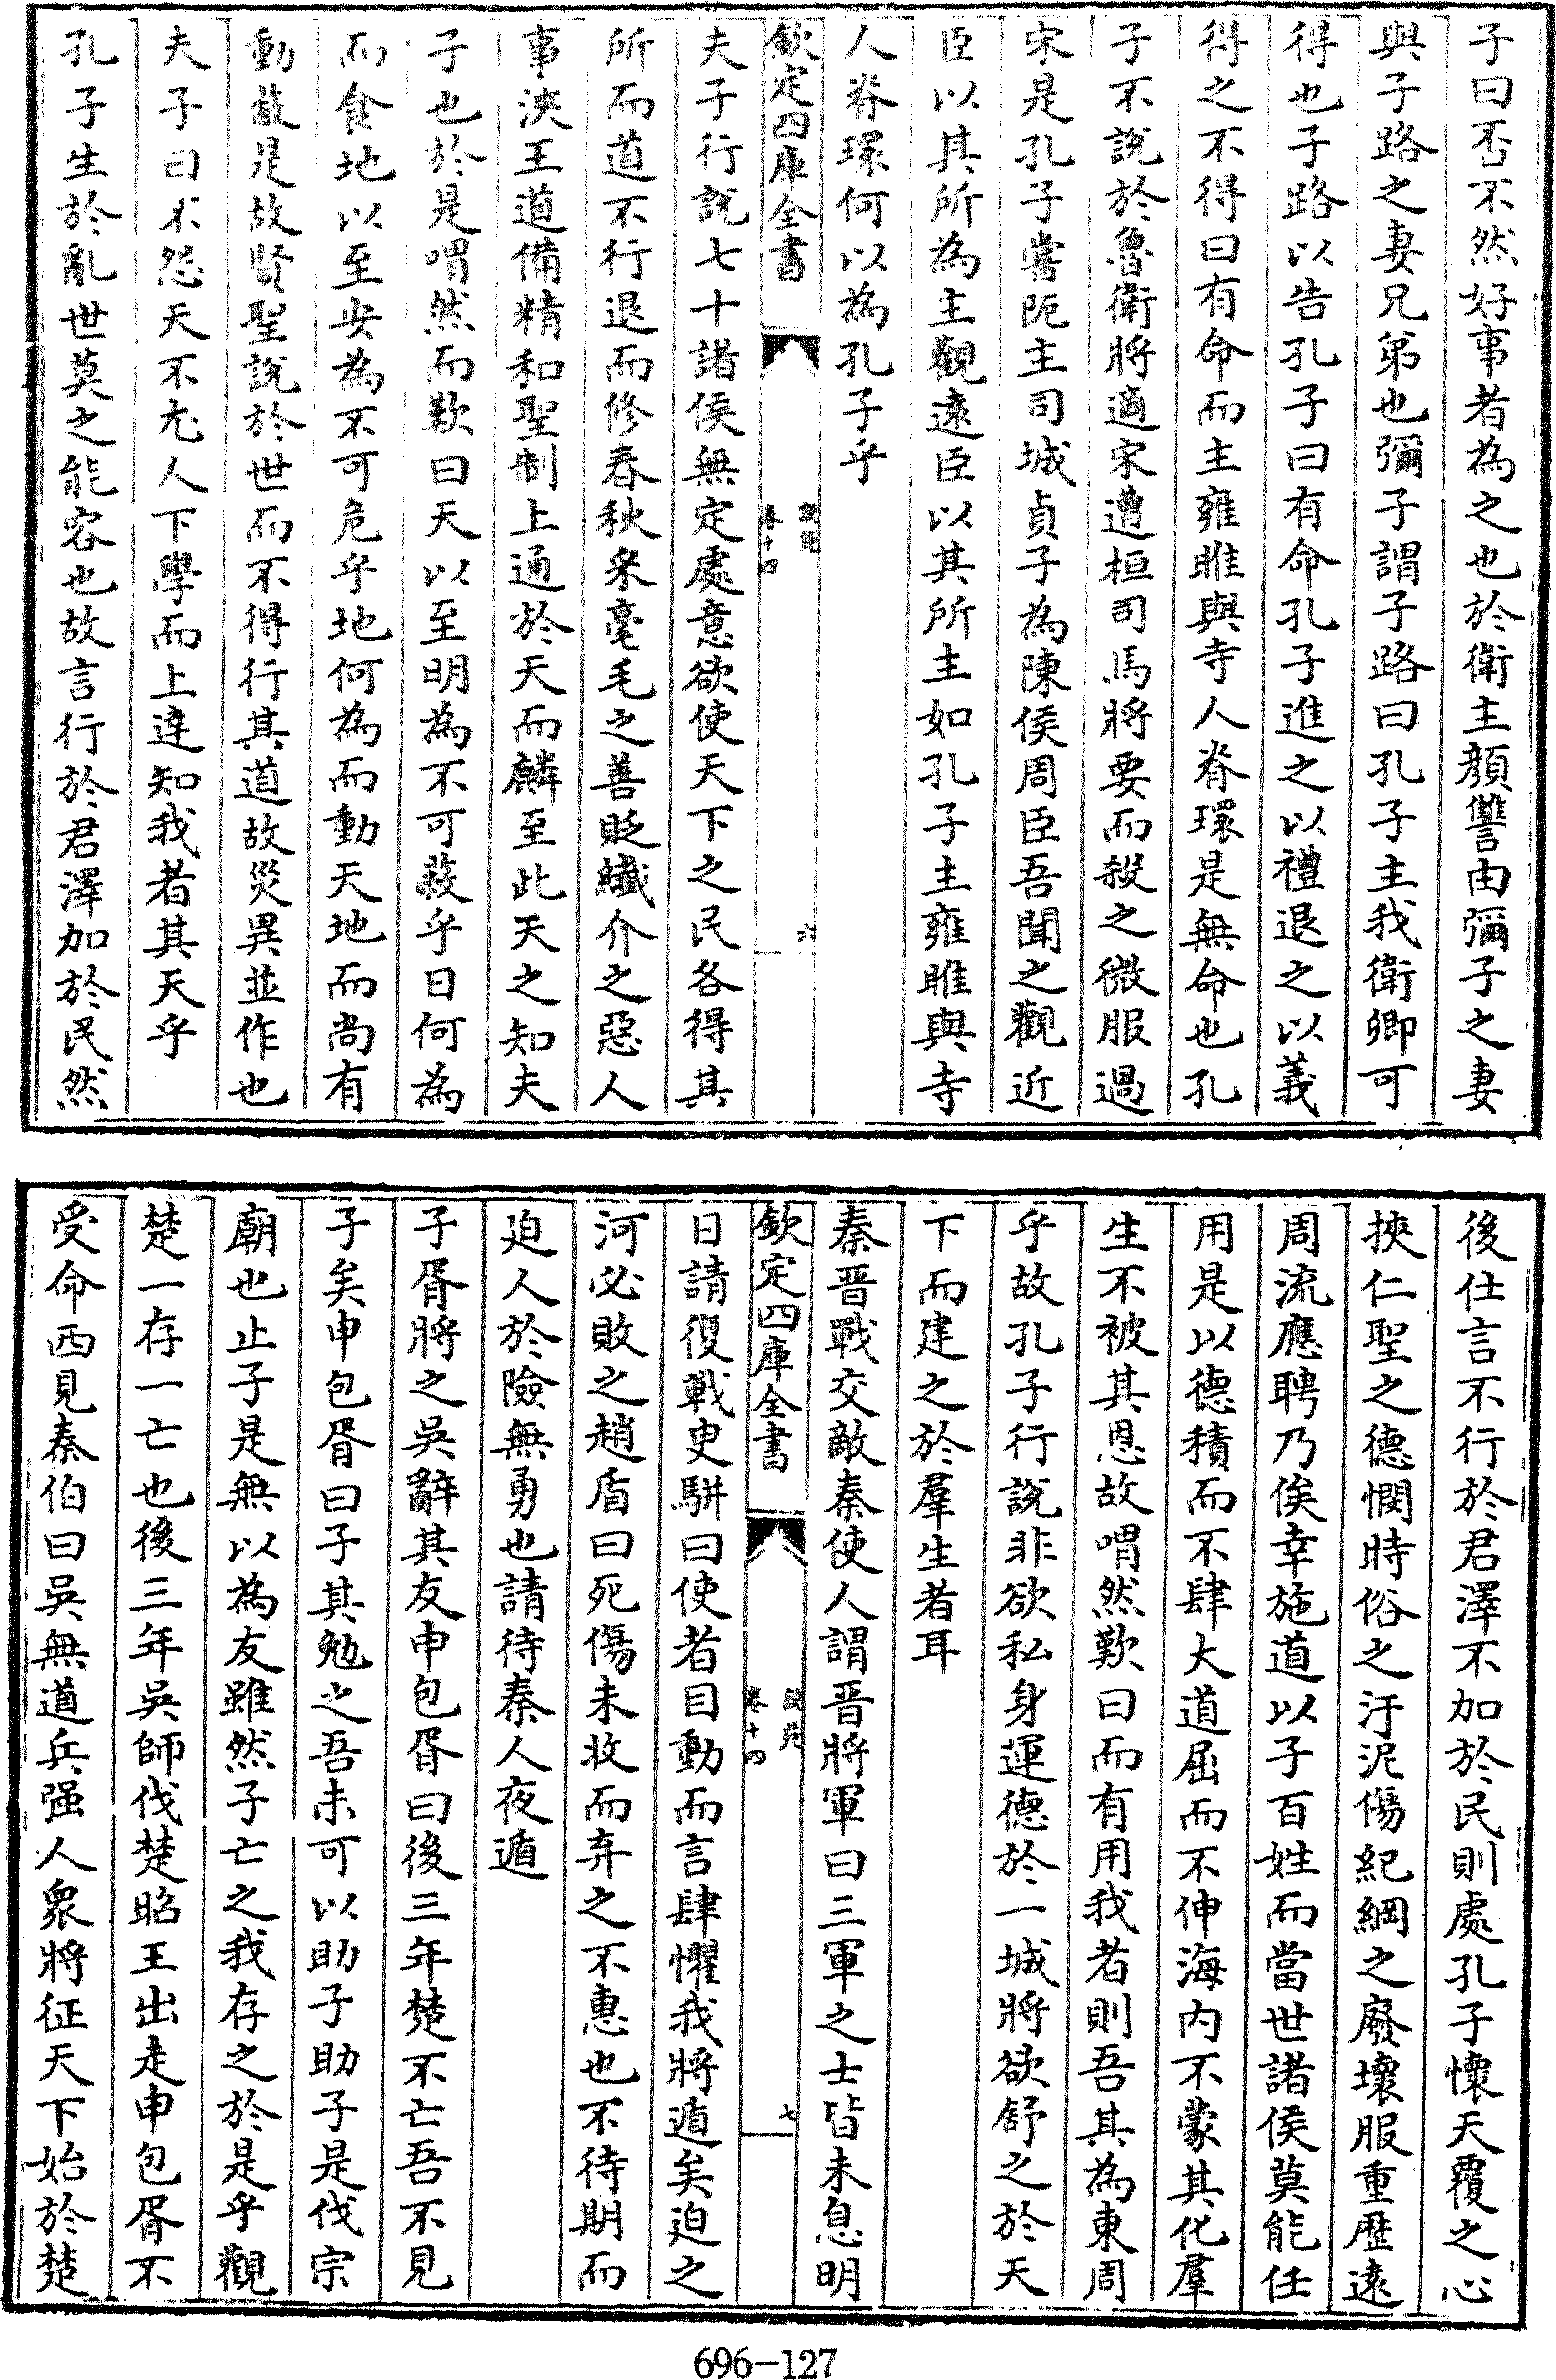 子曰否不然好事者為之也於衛主顏讐由彌子之妻
與子路之妻兄弟也彌子謂子路曰孔子主我衛卿可
得也子路以告孔子曰有命孔子進之以禮退之以義
得之不得曰有命而主雍睢與寺人脊環是無命也孔
子不說於魯衛將適宋遭桓司馬將要而殺之微服過
宋是孔子嘗阨主司城貞子為陳侯周臣吾聞之觀近
臣以其所為主觀遠臣以其所主如孔子主雍睢與寺
人脊環何以為孔子乎
欽定四庫全書
說苑
卷十四
六
夫子行說七十諸侯無定處意欲使天下之民各得其
所而道不行退而修春秋采毫毛之善貶纖介之惡人
事浹王道備精和聖制上通於天而麟至此天之知夫
子也於是喟然而歎曰天以至明為不可蔽乎日何為
而食地以至安為不可危乎地何為而動天地而尚有
動蔽是故賢聖說於世而不得行其道故災異並作也
夫子曰不怨天不尤人下學而上達知我者其天乎
孔子生於亂世莫之能容也故言行於君澤加於民然
後仕言不行於君澤不加於民則處孔子懷天覆之心
挾仁聖之德憫時俗之汙泥傷紀綱之廢壞服重歷遠
周流應聘乃俟幸施道以子百姓而當世諸侯莫能任
用是以德積而不肆大道屈而不伸海內不蒙其化羣
生不被其恩故喟然歎曰而有用我者則吾其為東周
乎故孔子行說非欲私身運德於一城將欲舒之於天
下而建之於羣生者耳
秦晉戰交敵秦使人謂晉將軍曰三軍之士皆未息明
欽定四庫全書
說苑
卷十四
七
日請復戰臾駢曰使者目動而言肆懼我將遁矣迫之
河必敗之趙盾曰死傷未收而弃之不惠也不待期而
迫人於險無勇也請待秦人夜遁
子胥將之吳辭其友申包胥曰後三年楚不亡吾不見
子矣申包胥曰子其勉之吾未可以助子助子是伐宗
廟也止子是無以為友雖然子亡之我存之於是乎觀
楚一存一亡也後三年吳師伐楚昭王出走申包胥不
受命西見秦伯曰吳無道兵强人衆將征天下始於楚
696-127